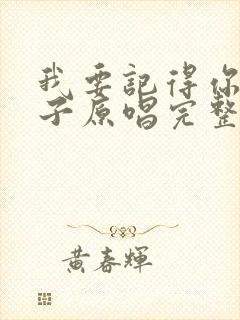 我要記得你
子原唱完整
黃春輝